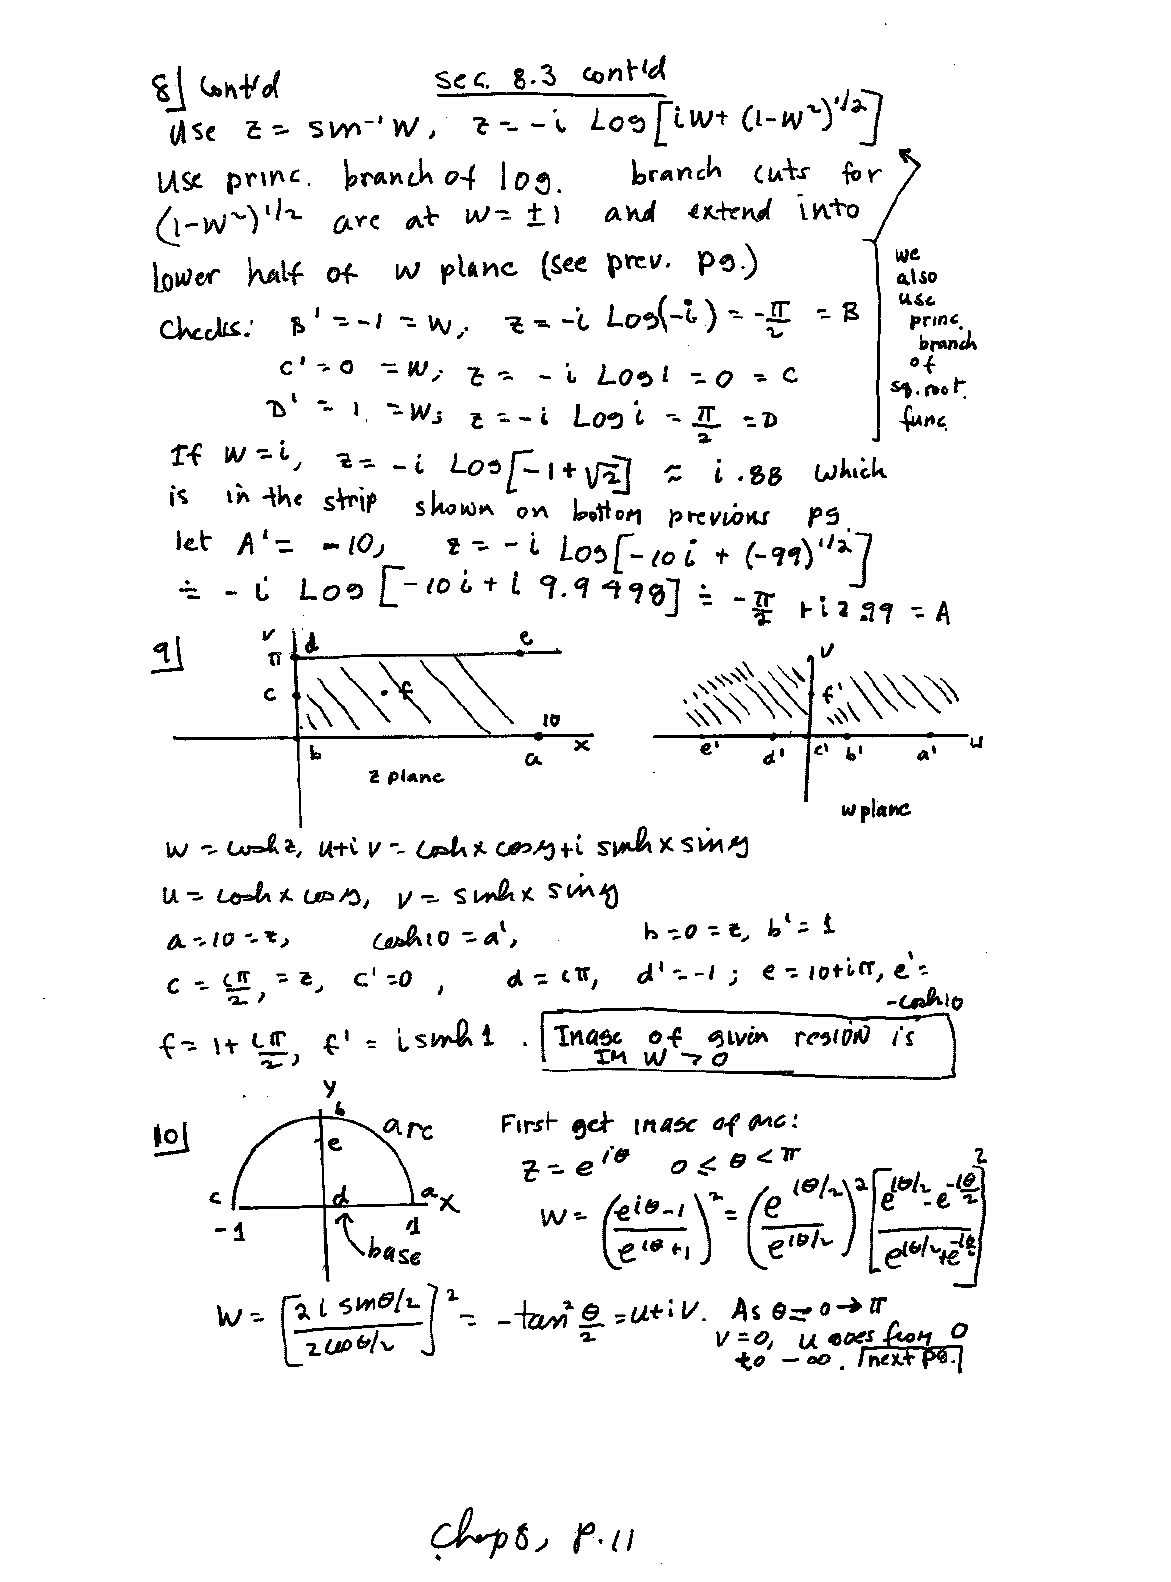 8] Cont'd sec. 8.3 cont'd
Use z = sin⁻¹ w, z = -i Log[iw + (1-w²)^1/2]
Use princ. branch of log. branch cuts for
(1-w²)^1/2 are at w = ±1 and extend into
lower half of w plane (see prev. pg.)
we
also
use
princ.
branch
of
sq. root
func.
Checks: B' = -1 = w, z = -i Log(-i) = -π/2 = B
C' = 0 = w; z = -i Log 1 = 0 = C
D' = 1 = w; z = -i Log i = π/2 = D
If w = i, z = -i Log[-1+√2] ≈ i .88 which
is in the strip shown on bottom previous pg.
let A' = -10, z = -i Log[-10i + (-99)^1/2]
≐ -i Log[-10i + i 9.9498] ≐ -π/2 + i 2.99 = A
9]
v
π
d
e
c
f
b
10
a
x
z plane
v
f'
e'
d'
c'
b'
a'
u
w plane
w = cosh z, u+iv = cosh x cos y + i sinh x sin y
u = cosh x cos y, v = sinh x sin y
a = 10 = z, cosh 10 = a', b = 0 = z, b' = 1
c = iπ/2, = z, c' = 0, d = iπ, d' = -1; e = 10+iπ, e' =
-cosh 10
f = 1 + iπ/2, f' = i sinh 1. Image of given region is
Im w > 0
10]
y
b
arc
e
c
d
a
x
-1
1
base
First get image of arc:
z = e^iθ 0 ≤ θ < π
w = ((e^iθ - 1)/(e^iθ + 1))² = (e^iθ/2 / e^iθ/2)² [(e^iθ/2 - e^-iθ/2)/(e^iθ/2 + e^-iθ/2)]²
w = [2i sin θ/2 / 2 cos θ/2]² = -tan² θ/2 = u+iv. As θ = 0 → π
v = 0, u goes from 0
to -∞. next pg.
Chap 8, p. 11